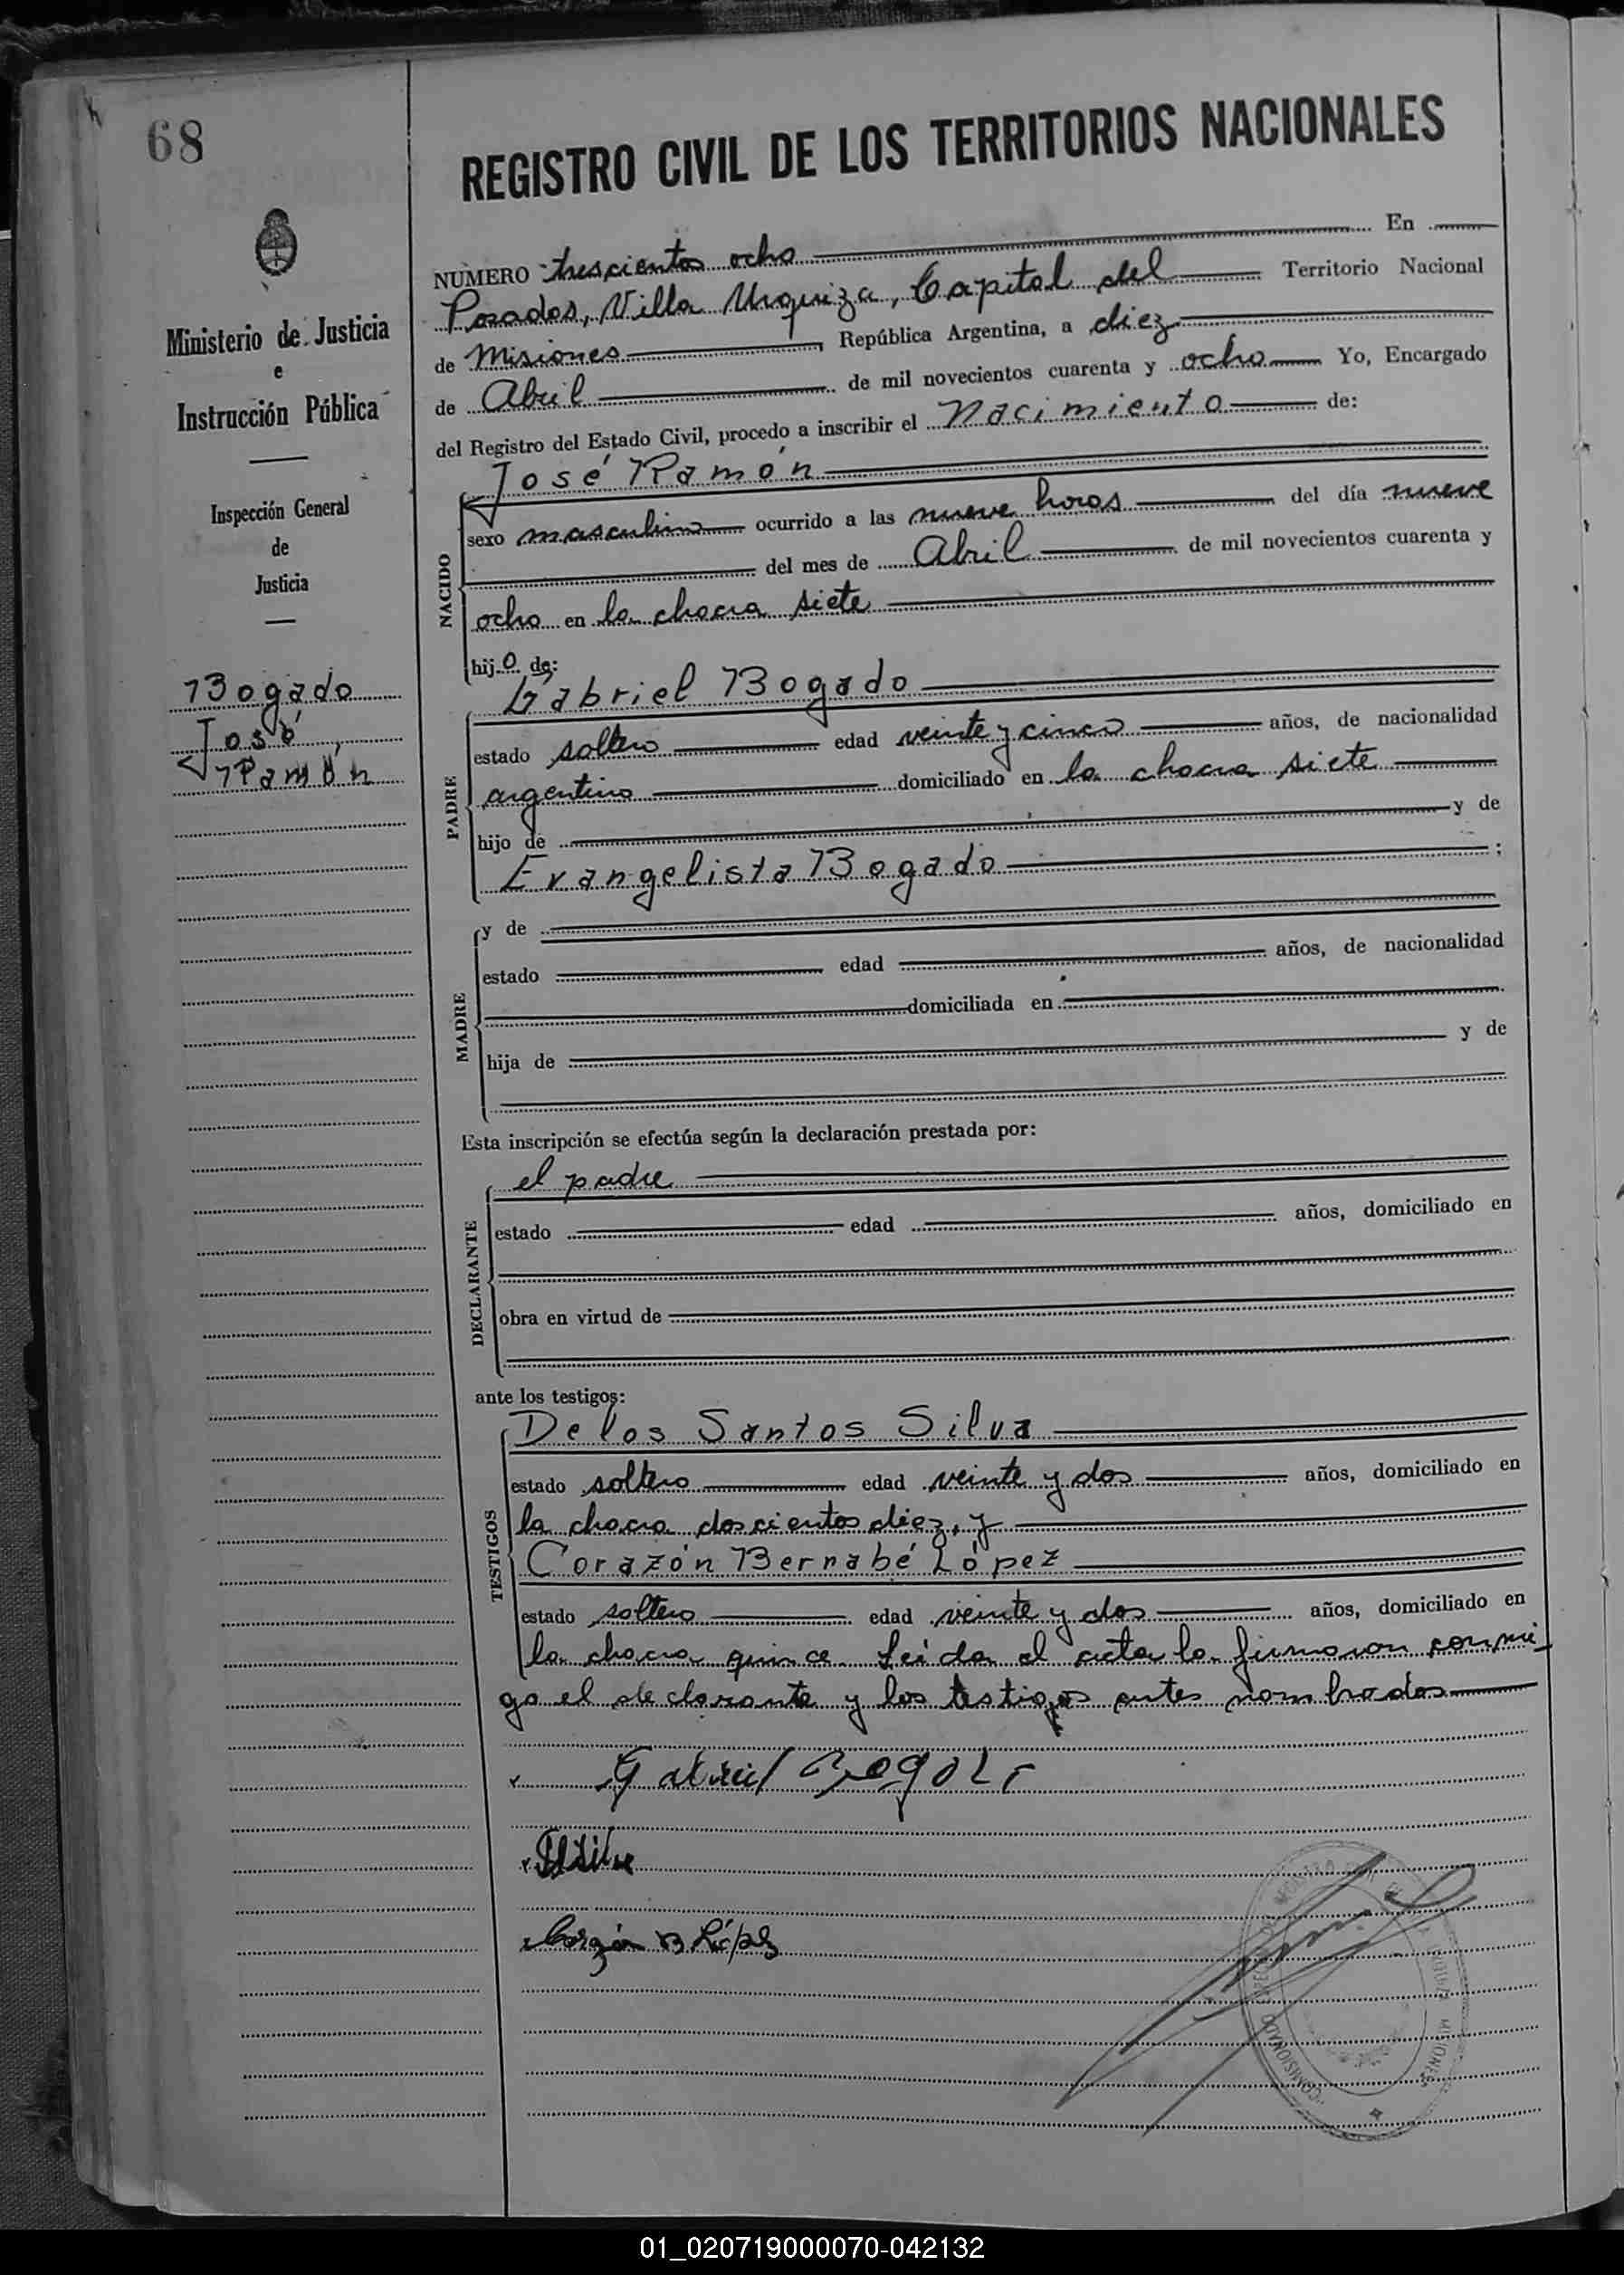 68
REGISTRO CIVIL DE LOS TERRITORIOS NACIONALES
Ministerio de Justicia
e
Instrucción Pública
Inspección General
de
Justicia
Bogado
José
Ramón
NUMERO trescientos ocho En
Posadas, Villa Urquiza, Capital del Territorio Nacional
de Misiones República Argentina, a diez
de Abril de mil novecientos cuarenta y ocho Yo, Encargado
del Registro del Estado Civil, procedo a inscribir el Nacimiento de:
NACIDO
José Ramón
sexo masculino ocurrido a las nueve horas del día nueve
del mes de Abril de mil novecientos cuarenta y
ocho en la chacra siete
hijo de:
PADRE
Gabriel Bogado
estado soltero edad veinte y cinco años, de nacionalidad
argentino domiciliado en la chacra siete
hijo de y de
Evangelista Bogado ;
MADRE
y de
estado edad años, de nacionalidad
domiciliada en
hija de y de
Esta inscripción se efectúa según la declaración prestada por:
DECLARANTE
el padre
estado edad años, domiciliado en
obra en virtud de
ante los testigos:
TESTIGOS
De los Santos Silva
estado soltero edad veinte y dos años, domiciliado en
la chacra doscientos diez, y
Corazón Bernabé López
estado soltero edad veinte y dos años, domiciliado en
la chacra quince. Leída el acta la firmaron conmi-
go el declarante y los testigos antes nombrados
Gabriel Bogado
Silva
Corazón B López
COMISIONADO
MISIONES
01_020719000070-042132